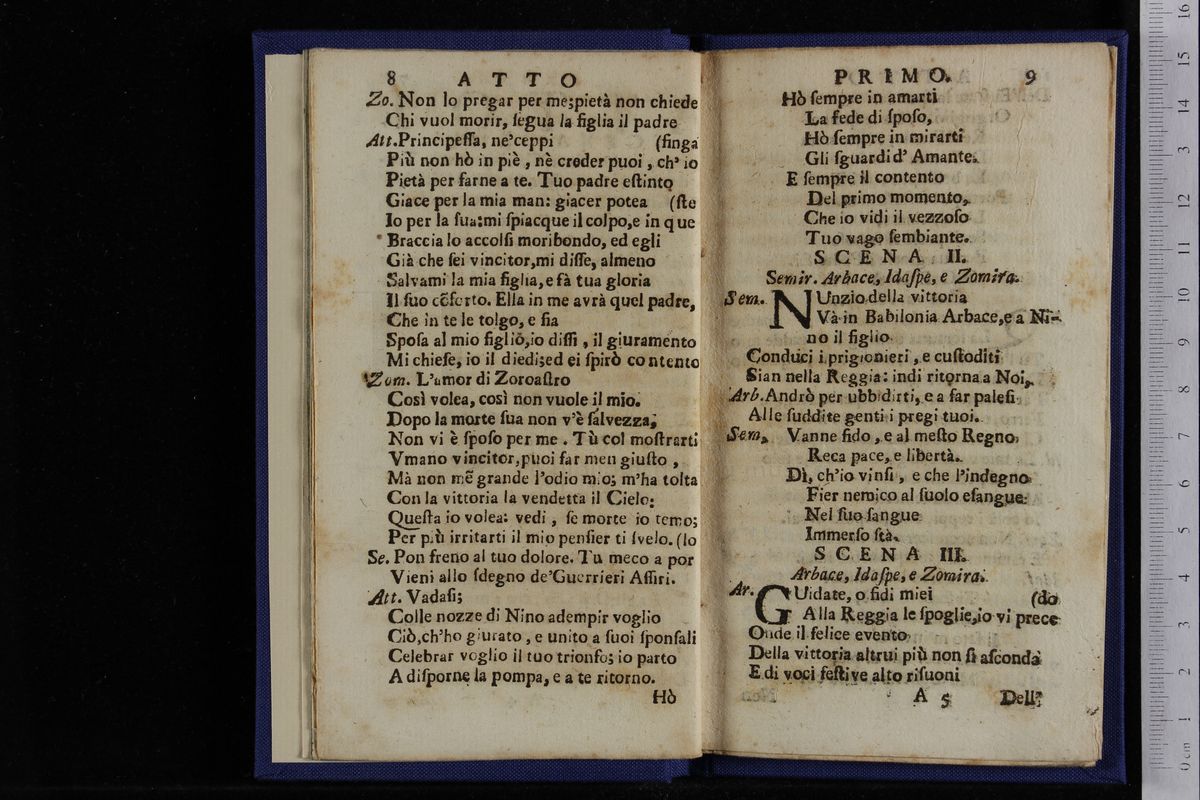 8 ATTO
Zo. Non lo pregar per me;pietà non chiede
Chi vuol morir, ſegua la figlia il padre
Att.Principeſſa, ne'ceppi (finga
Più non hò in piè , nè creder puoi , ch' io
Pietà per farne a te. Tuo padre eſtinto
Giace per la mia man: giacer potea (ſte
Io per la ſua:mi ſpiacque il colpo,e in que
Braccia lo accolſi moribondo, ed egli
Già che ſei vincitor,mi diſſe, almeno
Salvami la mia figlia,e fà tua gloria
Il ſuo cõſorto. Ella in me avrà quel padre,
Che in te le tolgo, e ſia
Spoſa al mio figlio,io diſſi , il giuramento
Mi chieſe, io il diedi;ed ei ſpirò contento
Zom. L'amor di Zoroaſtro
Così volea, così non vuole il mio.
Dopo la morte ſua non v'è ſalvezza;
Non vi è ſpoſo per me . Tù col moſtrarti
Vmano vincitor,puoi far men giuſto ,
Mà non mẽ grande l'odio mio; m'ha tolta
Con la vittoria la vendetta il Cielo:
Queſta io volea: vedi , ſe morte io temo;
Per più irritarti il mio penſier ti ſvelo. (lo
Se. Pon freno al tuo dolore. Tu meco a por
Vieni allo ſdegno de'Guerrieri Aſſiri.
Att. Vadaſi;
Colle nozze di Nino adempir voglio
Ciò,ch'ho giurato , e unito a ſuoi ſponſali
Celebrar voglio il tuo trionfo; io parto
A diſporne la pompa, e a te ritorno.
Hò
PRIMO. 9
Hò ſempre in amarti
La fede di ſpoſo,
Hò ſempre in mirarti
Gli ſguardi d' Amante.
E ſempre il contento
Del primo momento,
Che io vidi il vezzoſo
Tuo vago ſembiante.
SCENA II.
Semir. Arbace, Idaſpe, e Zomira.
Sem. NUnzio della vittoria
Và in Babilonia Arbace,e a Ni-
no il figlio
Conduci i prigionieri , e cuſtoditi
Sian nella Reggia: indi ritorna a Noi,
Arb.Andrò per ubbidirti, e a far paleſi
Alle ſuddite genti i pregi tuoi.
Sem. Vanne fido , e al meſto Regno
Reca pace, e libertà.
Dì, ch'io vinſi , e che l'indegno
Fier nemico al ſuolo eſangue
Nel ſuo ſangue
Immerſo ſtà.
SCENA III.
Arbace, Idaſpe, e Zomira.
Ar. GUidate, o fidi miei (do
Alla Reggia le ſpoglie,io vi prece
Onde il felice evento
Della vittoria altrui più non ſi aſconda
E di voci feſtive alto riſuoni
A 5 Dell'